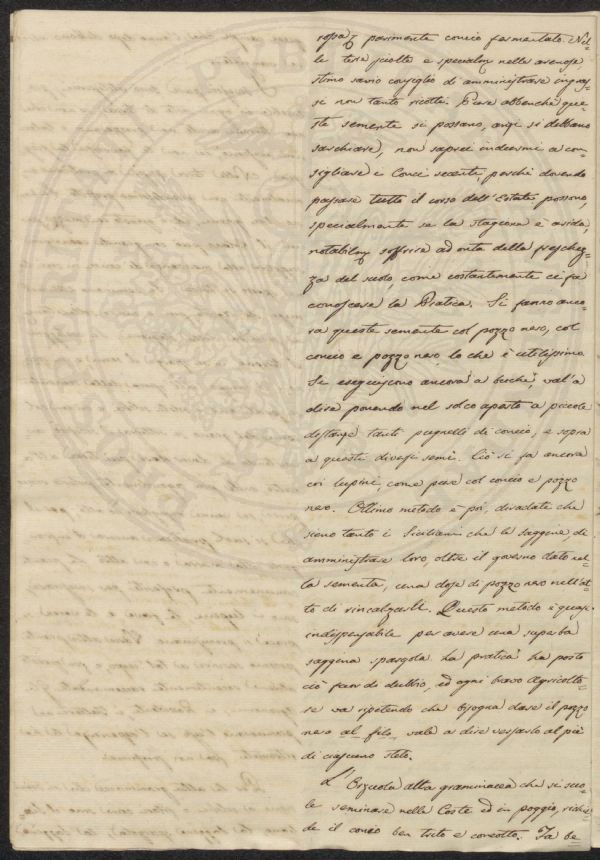 parimente concio fermentato. Nel-
le terre sciolte e specialm nelle arenose,
stimo savio consiglio di amministrare ingras-
si non tanto ricotti. Pare abbenché que-
ste semente si possano, anzi si debbano
sarchiare, non saprei indurmi a con-
sigliare i Conci recenti, perché dovendo
passare tutto il corso dell'Estate possono,
specialmente se la stagione è arida,
notabilm soffrire ad onta della freschez-
za del suolo, come costantemente ci fa
conoscere la Pratica. Si fanno anco-
ra queste semente col pozzo nero, col
concio e pozzo nero lo che è utilissimo.
Si eseguiscono ancora a buche, val'a
dire ponendo nel solco aperto a piccole
distanze tanti pugnelli di concio, e sopra
a questi diversi semi. Ciò si fa ancora
coi lupini, come pure col concio e pozzo
nero. Ottimo metodo è poi, diradate che
sieno tanto i Siciliani che le saggine, di
amministrare loro, oltre il governo dato al-
la sementa, una dose di pozzo nero nell'at-
to di rincalzarli. Questo metodo è quasi
indispensabile per avere una superba
saggina spargola la pratica ha posto
ciò fuor di dubbio, ed ogni bravo Agricolto-
re va ripetendo che bisogna dare il pozzo
nero al filo, vale a dire versarlo al piè
di ciascuno stelo.
L' altra graminacea che si suo-
le seminare nelle Coste ed in poggio, richie-
de il concio ben trito e concotto. Fa be